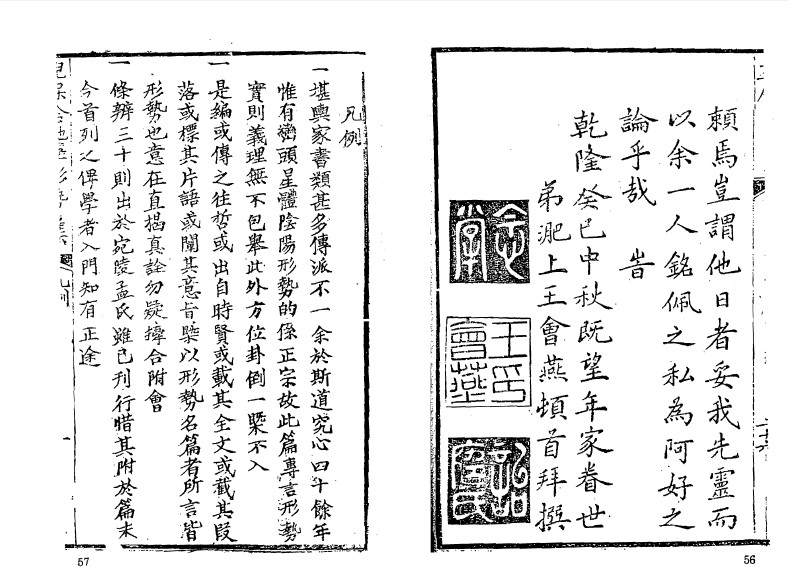 賴焉豈謂他日者妥我先靈而
以余一人銘佩之私為阿好之
論乎哉 旹
乾隆癸巳中秋既望年家眷世
弟淝上王會燕頓首拜撰
王印
會燕
56
凡例
一堪輿家書類甚多傳派不一余於斯道究心四十餘年
惟有巒頭星體陰陽形勢的係正宗故此篇專言形勢
實則義理無不包舉此外方位卦倒一槩不入
一是編或傳之往哲或出自時賢或載其全文或截其段
落或標其片語或闡其意旨槩以形勢名篇者所言皆
形勢也意在直揭真詮勿疑撦合附會
一條辨三十則出於宛陵孟氏雖已刊行惜其附於篇末
今首列之俾學者入門知有正途
凡例
一
57